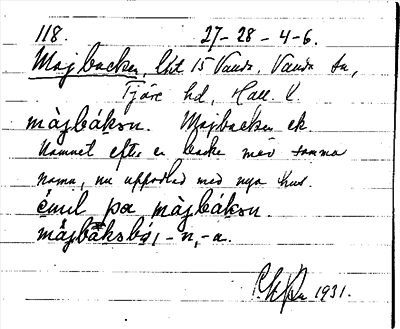 118. 27-28-4-6.
Majbacken, lht 15 Vanda. Vanda sn,
Fjäre hd, Hall. l.
màjbákən. Majbacken ek.
Namnet efter en backe med samma
namn, nu uppodlad med nya hus.
émil pa màjbákən.
màjbáksbó, -n, -a.
1931.